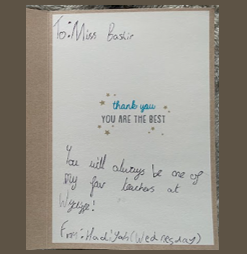 To: Miss Bashir
thank you
YOU ARE THE BEST
You will always be one of
my fav teachers at
From: Hadiyah (Wednesday)